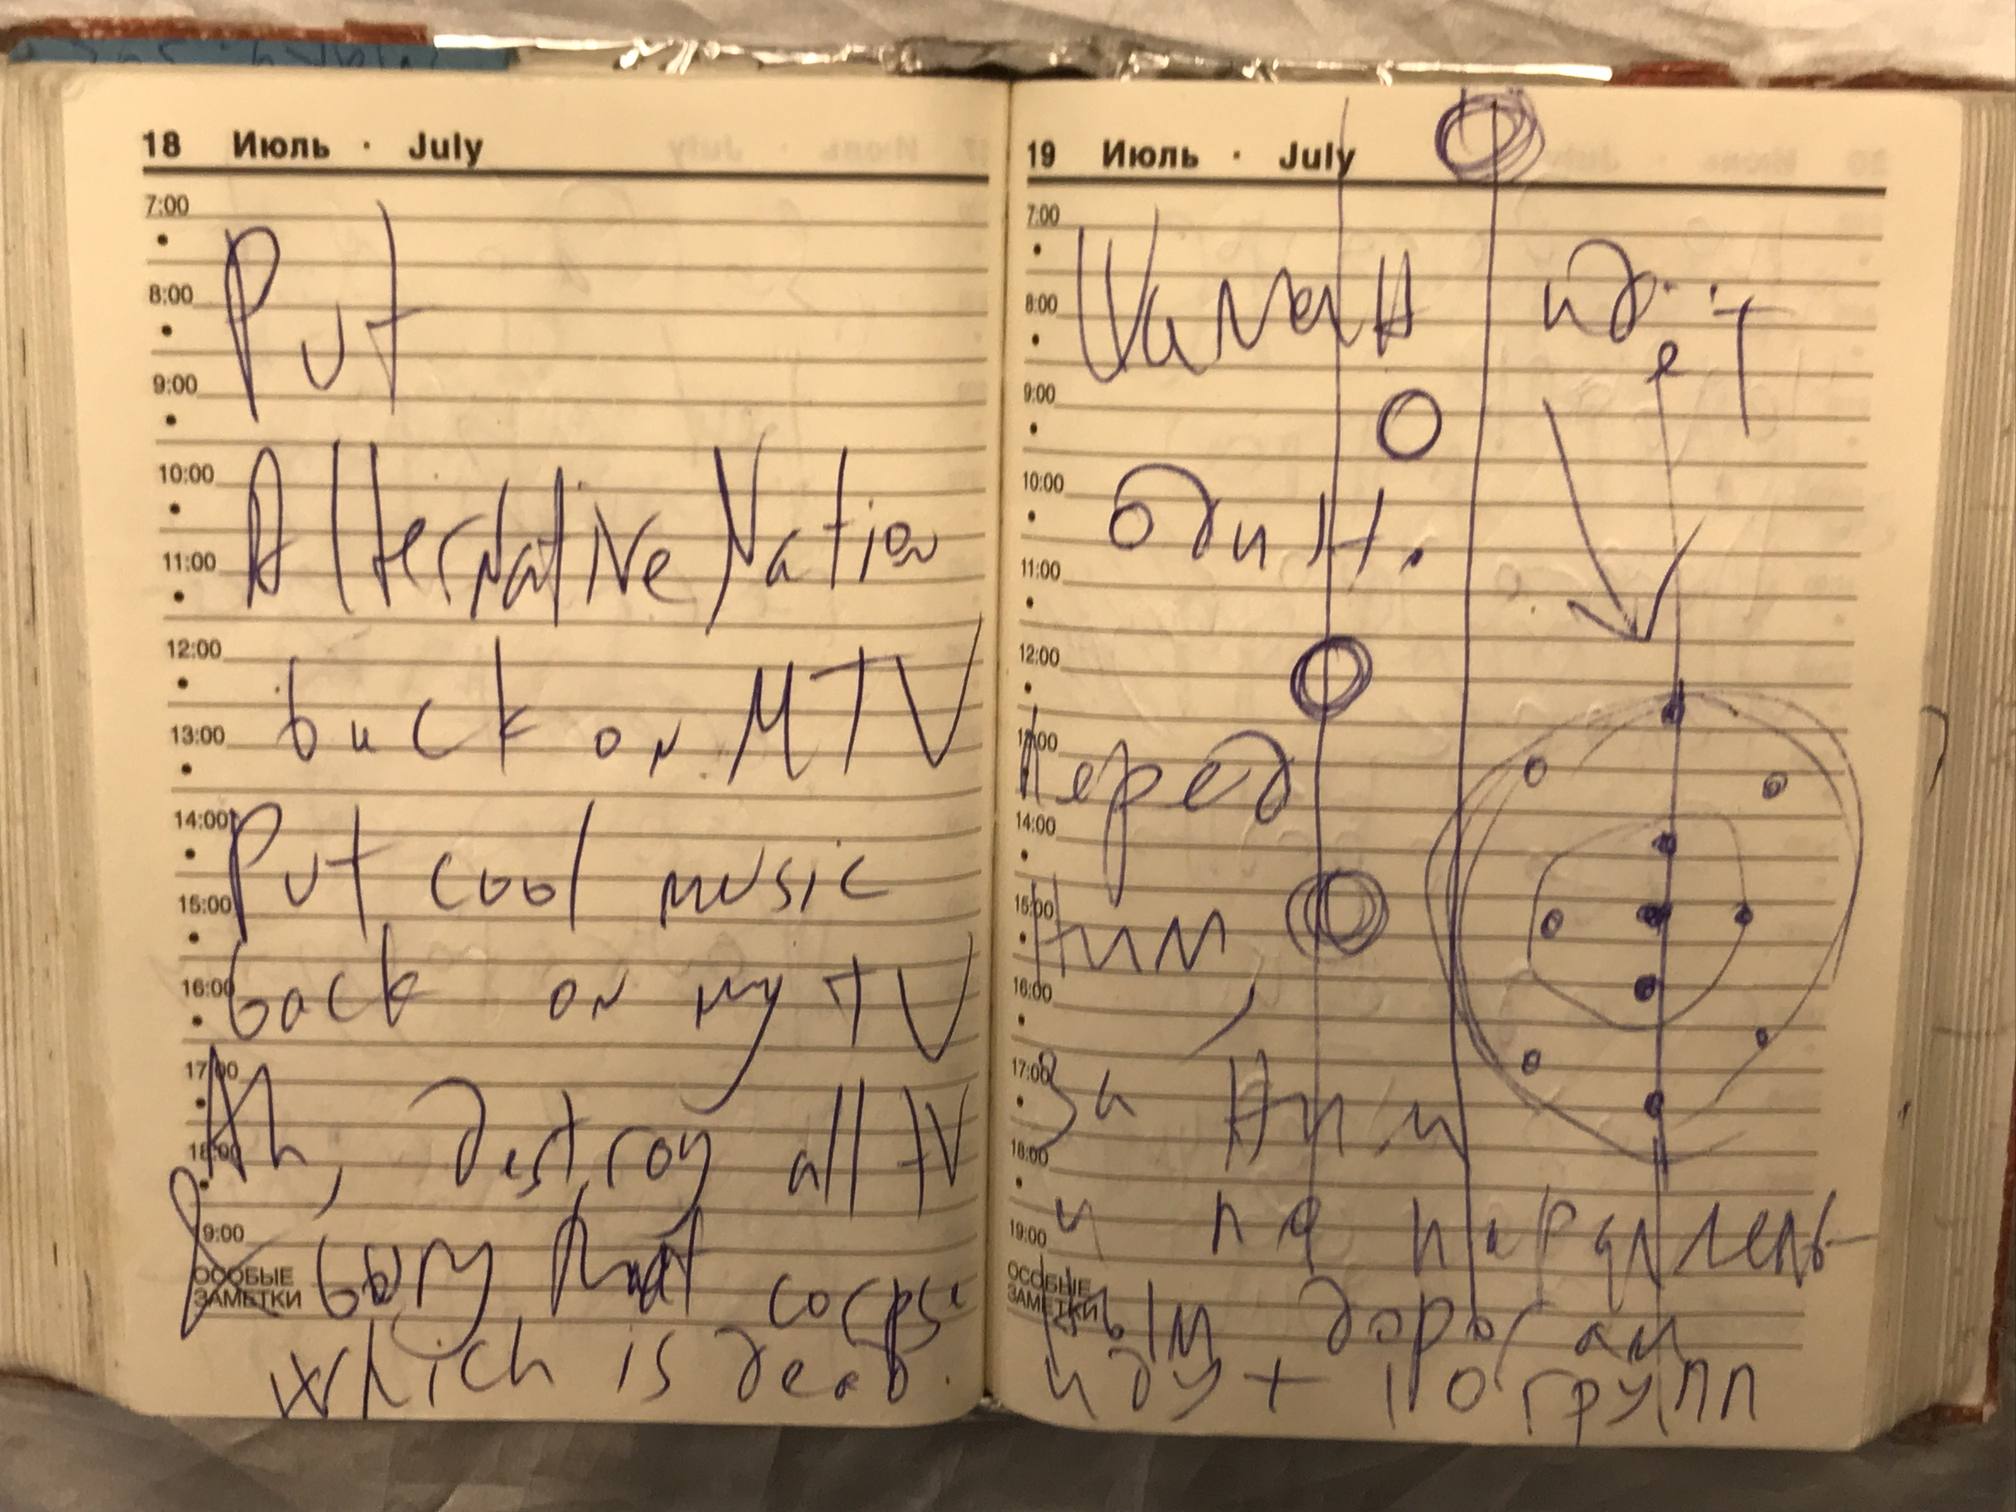 18 Июль · July
7:00
8:00
9:00
10:00
11:00
12:00
13:00
14:00
15:00
16:00
17:00
18:00
9:00
ОСОБЫЕ
ЗАМЕТКИ
Put
Alternative Nation
back on MTV
Put cool music
back on my TV
Ah, destroy all TV
& bury that corpse
which is dead.
19 Июль · July
7:00
8:00
9:00
10:00
11:00
12:00
13:00
14:00
15:00
16:00
17:00
18:00
19:00
ОСОБЫЕ
ЗАМЕТКИ
Шаман идёт
один.
Перед
ним,
за ним
и по параллель-
ным дорогам
идут 10 групп